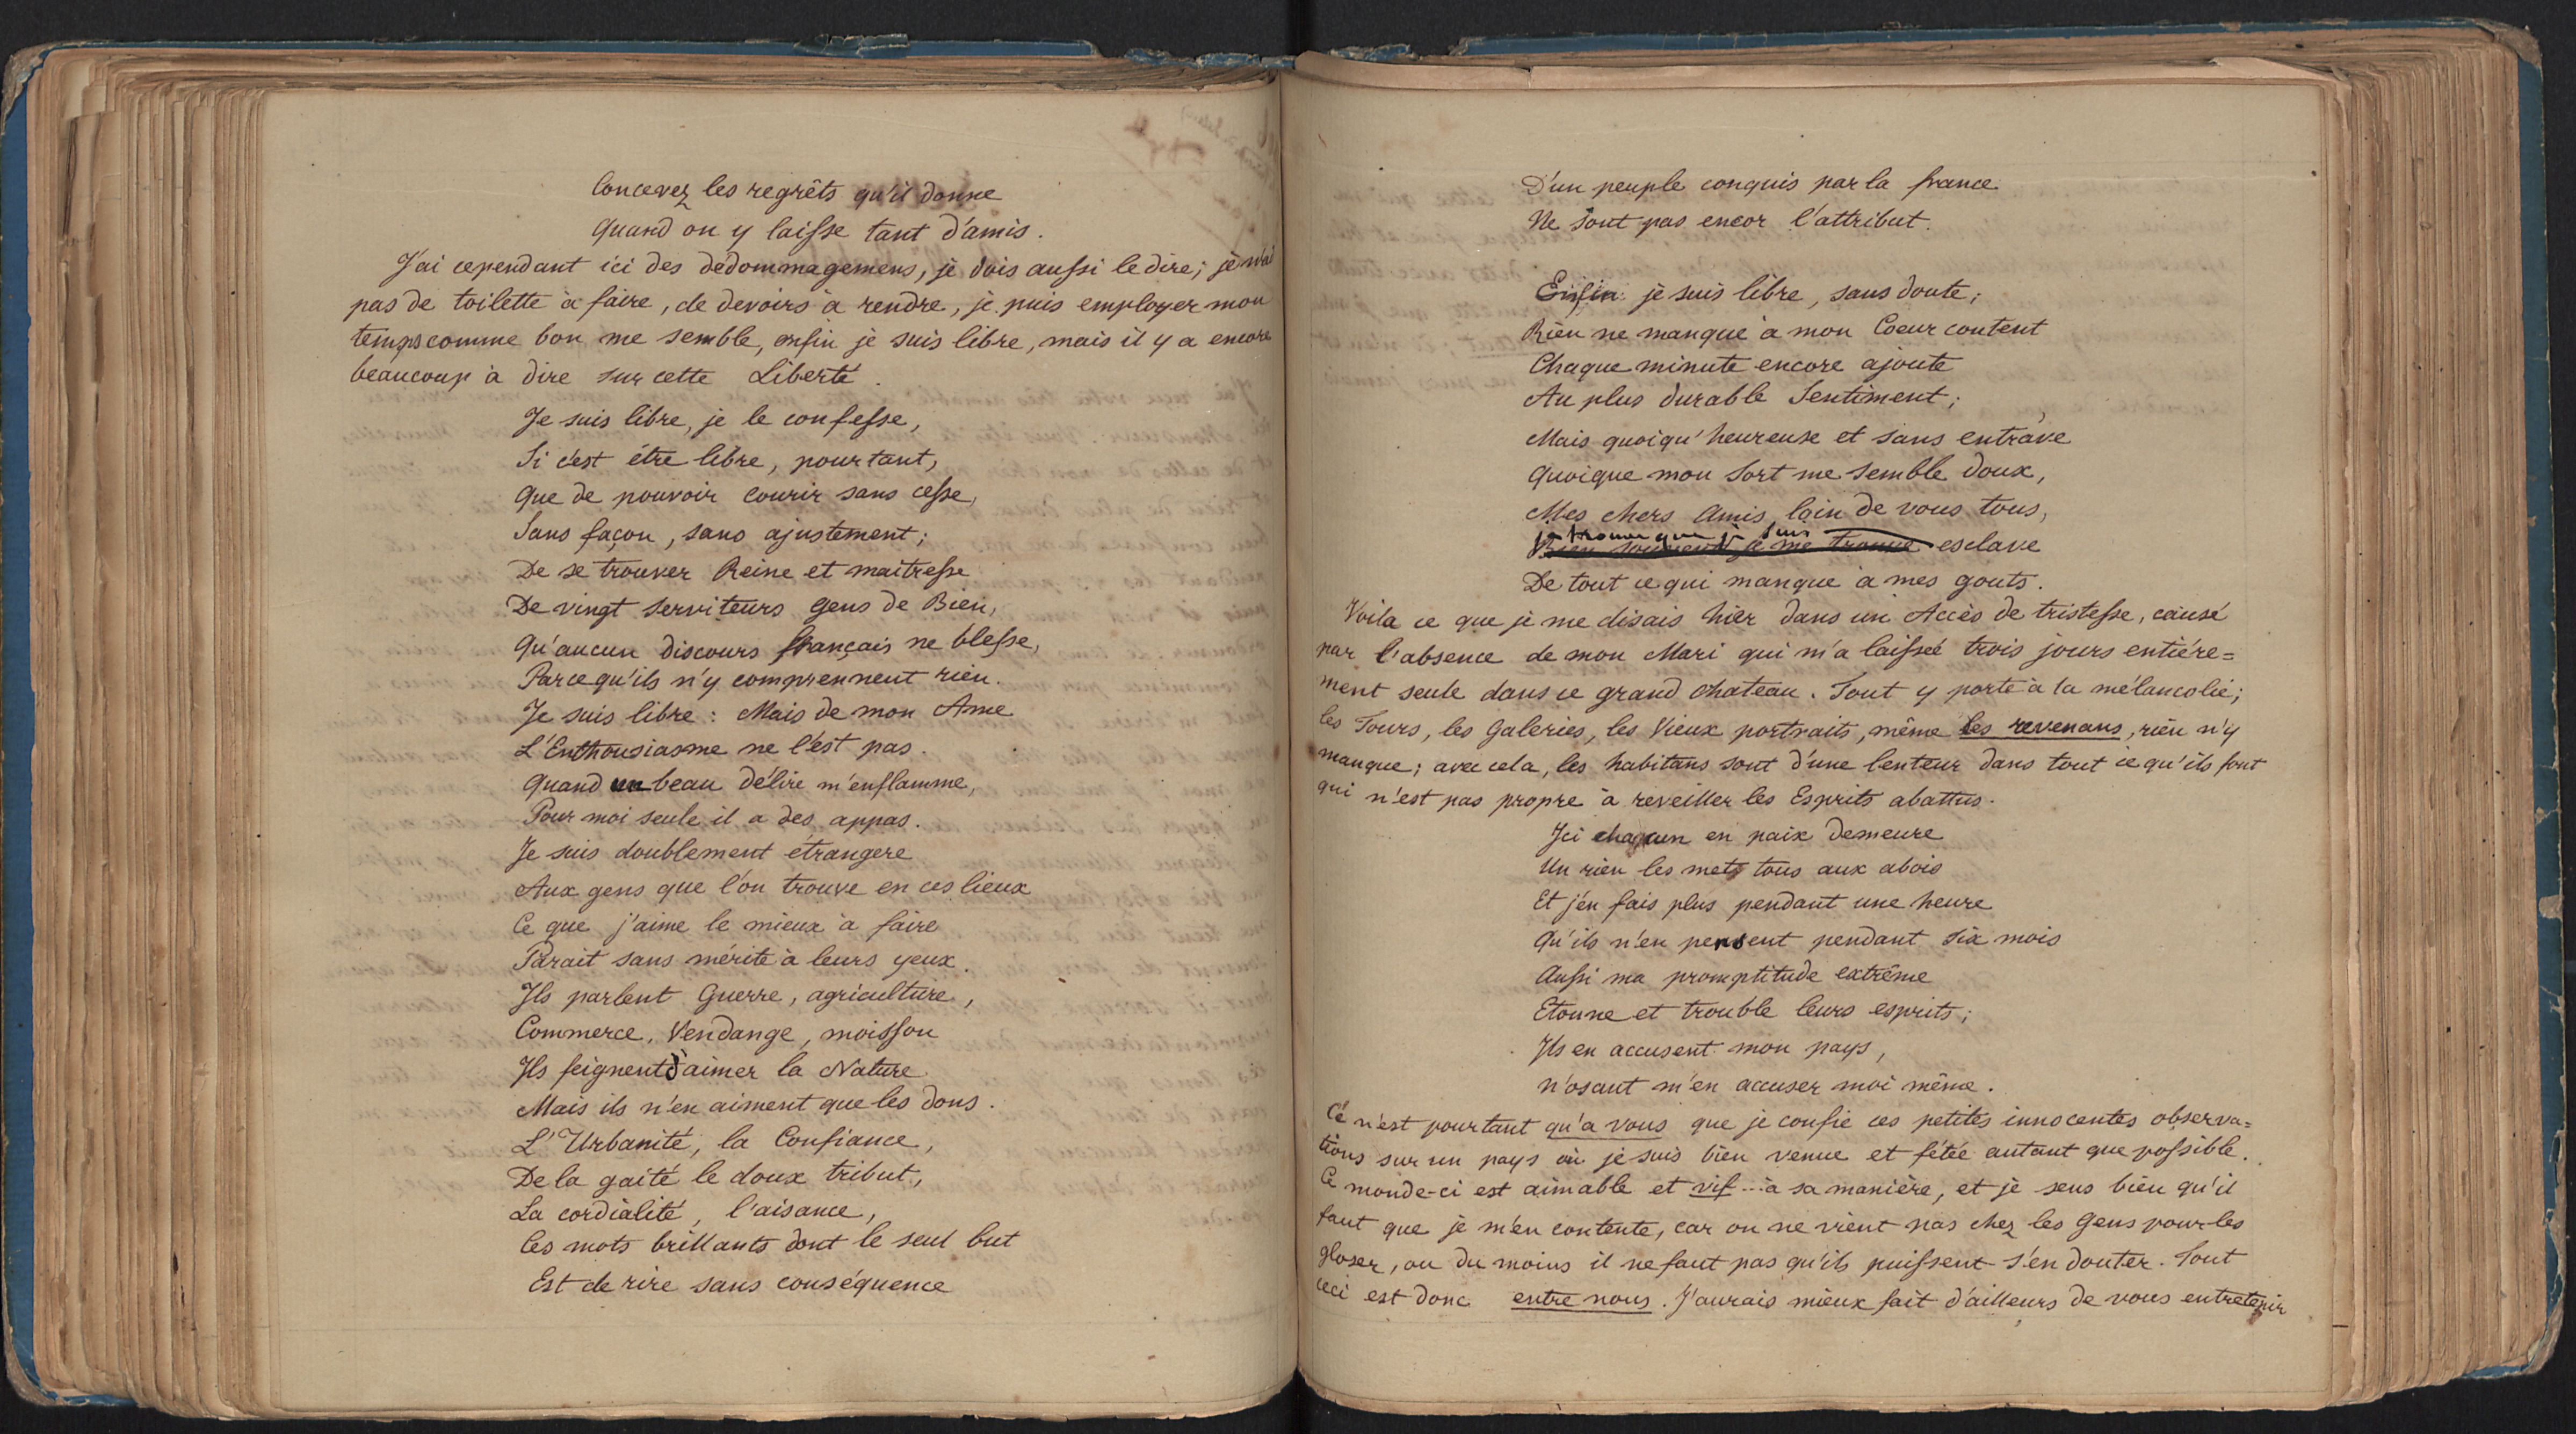 Concevez les regrêts qu'il donne
Quand on y laisse tant d'amis.
J'ai cependant ici des dédommagemens, je dois aussi le dire; je n'ai
pas de toilette à faire, de devoirs à rendre, je puis employer mon
temps comme bon me semble, enfin je suis libre, mais il y a encore
beaucoup à dire sur cette Liberté.
Je suis libre, je le confesse,
Si c'est être libre, pourtant,
Que de pouvoir courir sans cesse,
Sans façon, sans ajustement;
De se trouver Reine et maitresse
De vingt serviteurs gens de Bien,
Qu'aucun discours français ne blesse,
Parce qu'ils n'y comprennent rien.
Je suis libre: Mais de mon Ame
L'Enthousiasme ne l'est pas.
Quand un beau délire m'enflamme,
Pour moi seule il a des appas.
Je suis doublement étrangere
Aux gens que l'on trouve en ces lieux
Ce que j'aime le mieux à faire
Parait sans mérite à leurs yeux.
Ils parlent Guerre, agriculture,
Commerce, Vendange, moisson
Ils feignent d'aimer la Nature
Mais ils n'en aiment que les dons.
L'Urbanité, la Confiance,
De la gaité le doux tribut,
La cordialité, l'aisance,
Ces mots brillants dont le seul but
Est de rire sans conséquence
D'un peuple conquis par la france
Ne sont pas encor l'attribut.
Enfin je suis libre, sans doute;
Rien ne manque à mon Coeur content
Chaque minute encore ajoute
Au plus durable Sentiment;
Mais quoiqu'heureuse et sans entrave
Quoique mon Sort me semble doux,
Mes chers Amis, loin de vous tous,
je trouve que je suis
Bien souvent je me trouve esclave
De tout ce qui manque à mes gouts.
Voila ce que je me disais hier dans un Accès de tristesse, causé
par l'absence de mon Mari qui m'a laissée trois jours entiére=
ment seule dans ce grand chateau. Tout y porte à la mélancolie;
les Tours, les Galeries, les Vieux portraits, même les revenans, rien n'y
manque; avec cela, les habitans sont d'une lenteur dans tout ce qu'ils font
qui n'est pas propre à reveiller les Esprits abattus.
Ici chacun en paix demeure
Un rien les mets tous aux abois
Et j'en fais plus pendant une heure
Qu'ils n'en pensent pendant six mois
Aussi ma promptitude extrême
Etonne et trouble leurs esprits;
Ils en accusent mon pays,
n'osant m'en accuser moi même.
Ce n'est pourtant qu'a vous que je confie ces petites innocentes observa=
tions sur un pays où je suis bien venue et fétée autant que possible.
Ce monde-ci est aimable et vif... à sa manière, et je sens bien qu'il
faut que je m'en contente, car on ne vient pas chez les Gens pour les
gloser, ou du moins il ne faut pas qu'ils puissent s'en douter. Tout
ceci est donc entre nous. J'aurais mieux fait d'ailleurs de vous entretenir